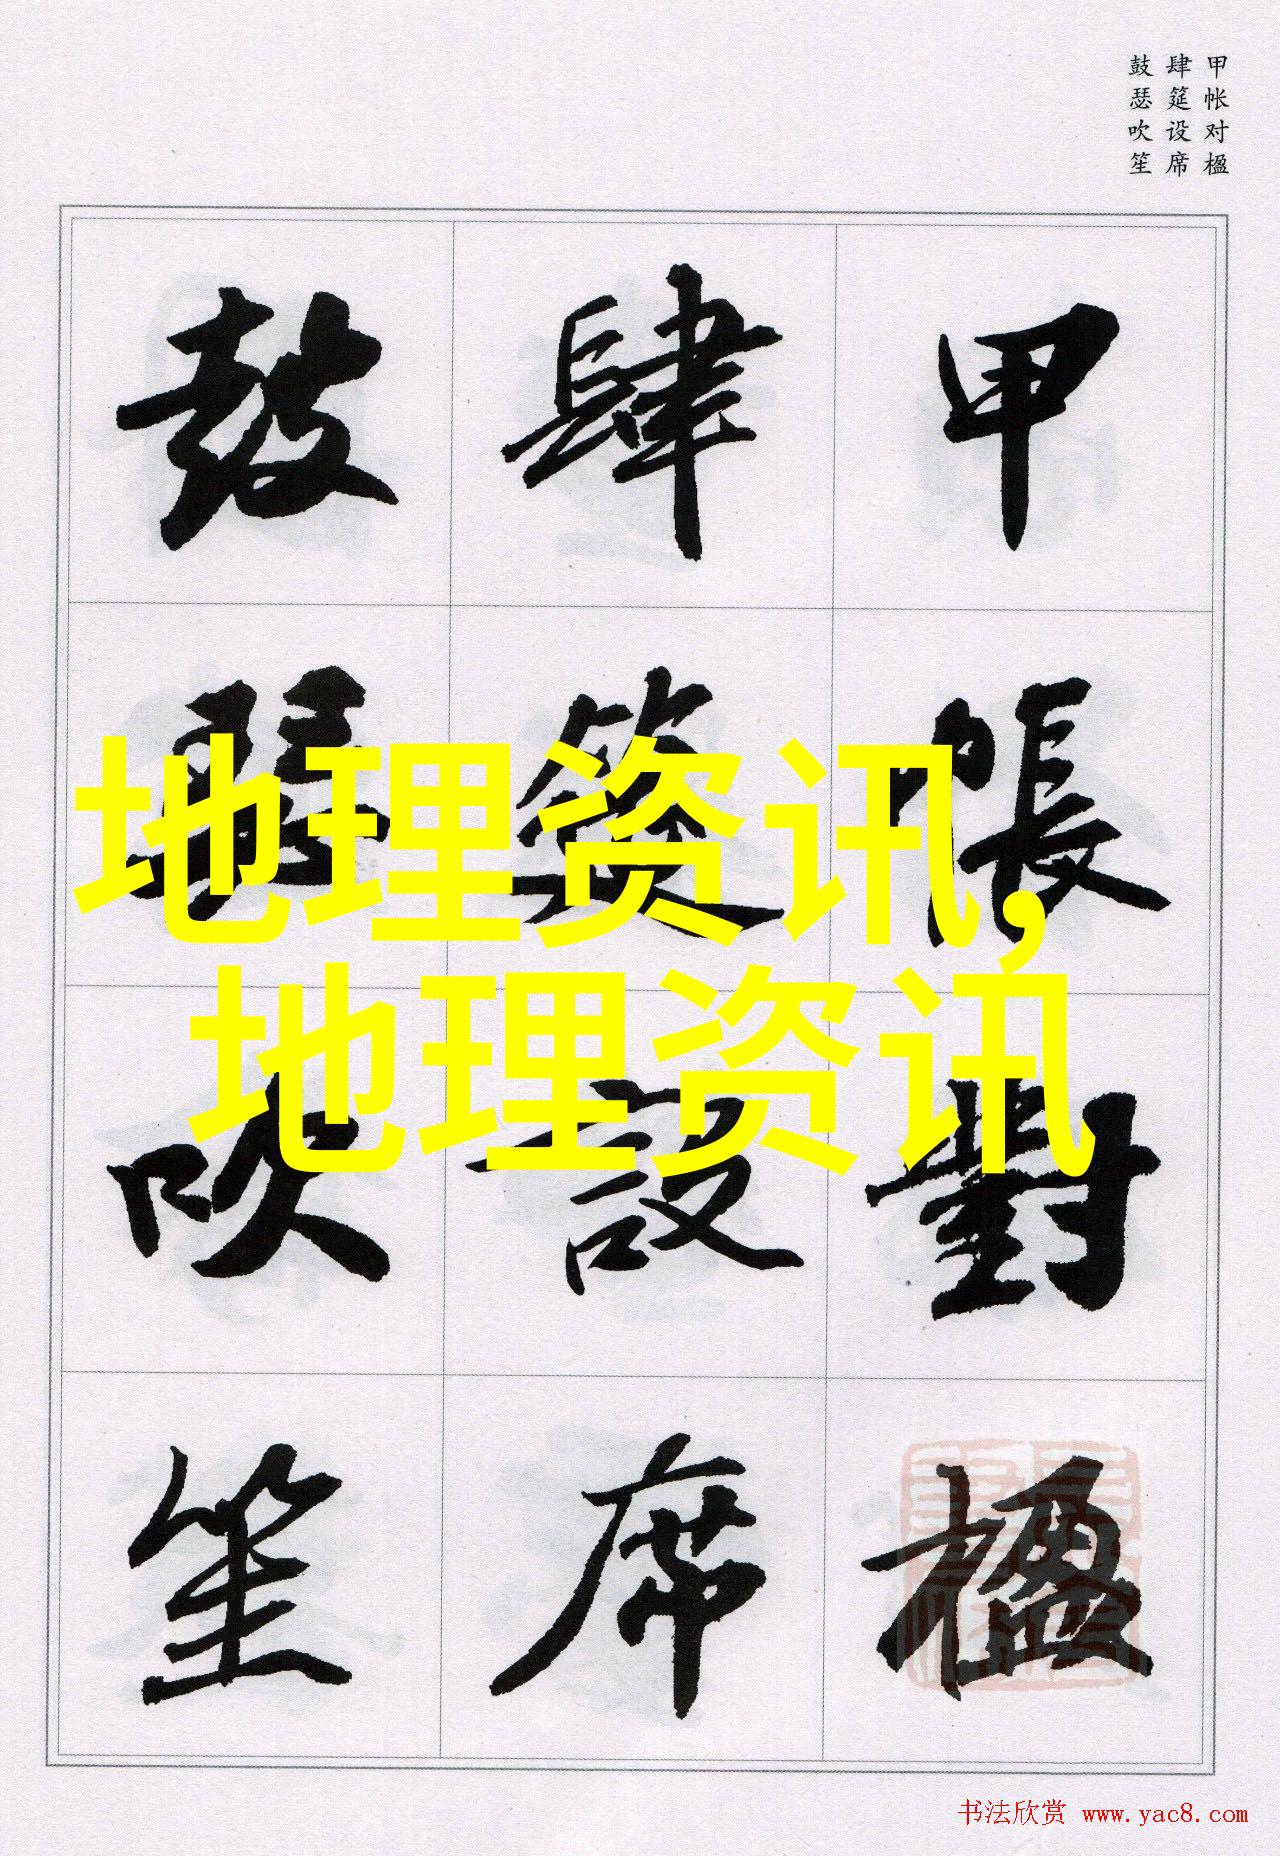 甲帐对楹
肆筵设席
鼓瑟吹笙
甲帳對楹
肆筵設席
鼓瑟吹笙
地理资讯,
地理资讯
书法欣赏 www.yac8.com